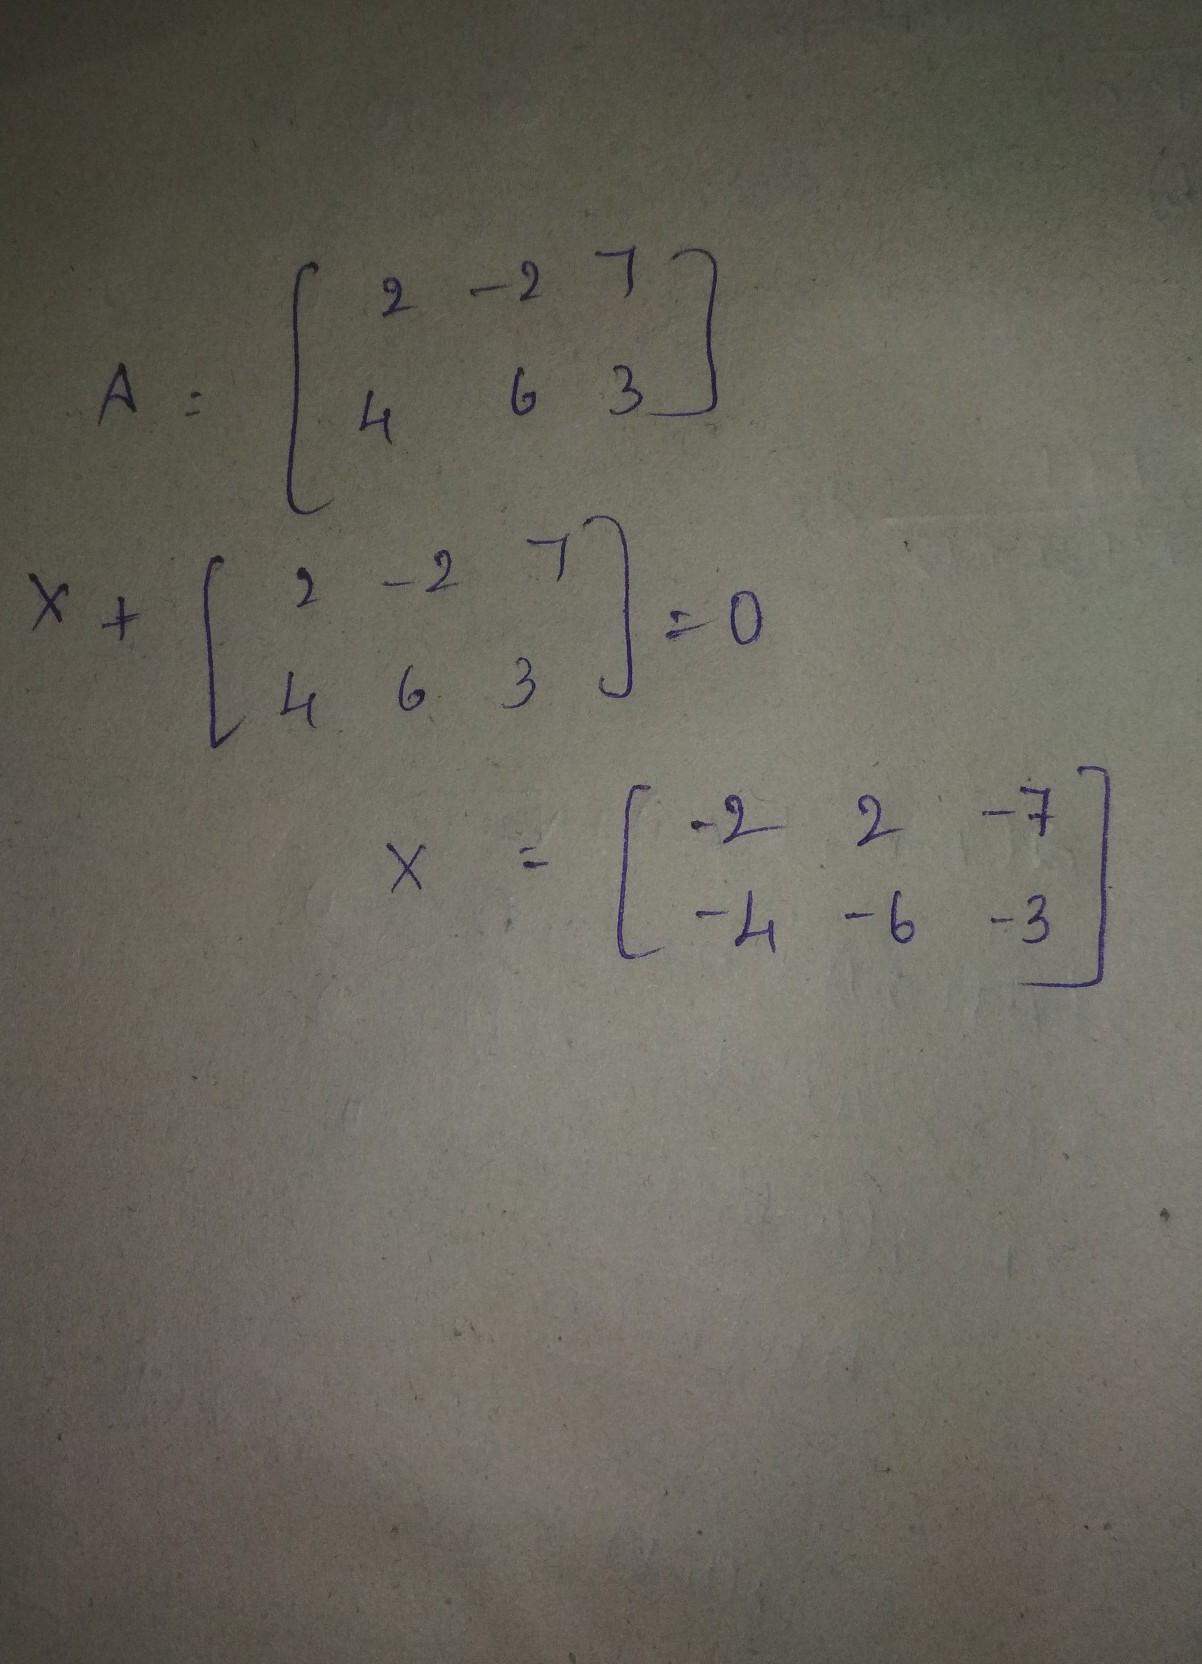 A = [ 2 -2 7
4 6 3 ]
X + [ 2 -2 7
4 6 3 ] = 0
X = [ -2 2 -7
-4 -6 -3 ]